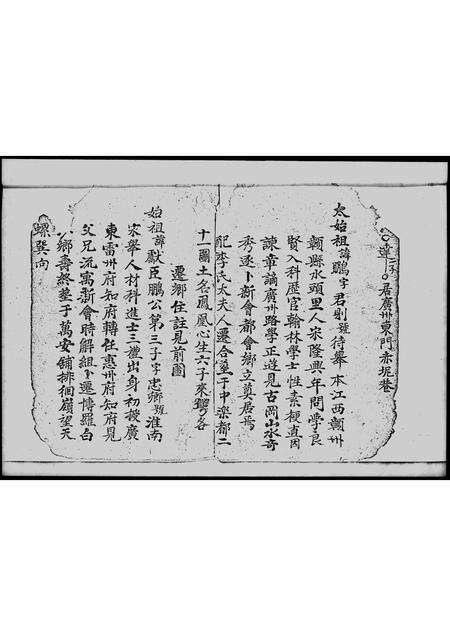 居廣州東門赤坭巷
太始祖諱鵬字君則號待舉本江西贛州
贛縣水頭里人宋隆興年間學良
賢入科歷官翰林學士性素梗直因
諫章謫廣州路學正遊見古岡山水奇
秀遂卜新會都會鄉立奠居焉
配李氏太夫人遷合塟于中樂都二
十一圖土名鳳凰心生六子來各
遷鄉住註見前圖
始祖諱獻臣鵬公第三子字忠鄉號淮南
宋舉人材科進士三禮出身初授廣
東雷州府知府轉任惠州府知府見
父兄流寓新會時解組卜遷博羅白
鄉壽終塟于萬安鋪排徊嶺望天
螺巽向